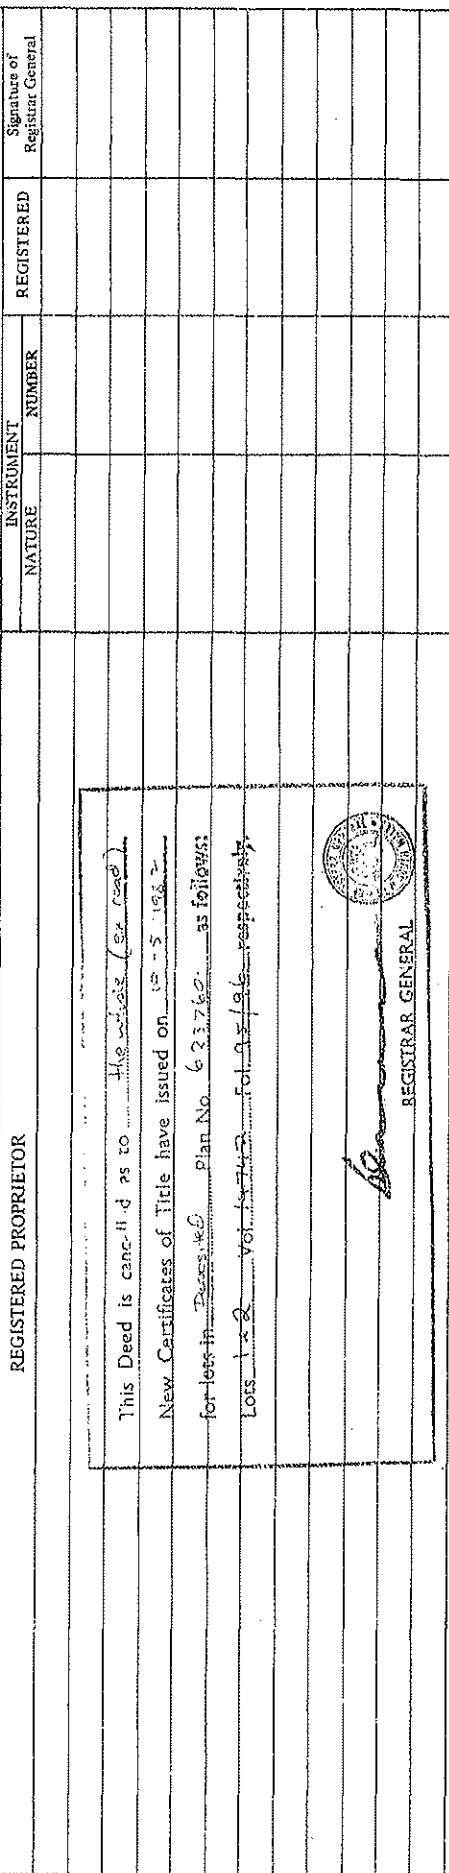 REGISTERED PROPRIETOR
INSTRUMENT
NATURE
NUMBER
REGISTERED
Signature of
Registrar General
This Deed is cancelled as to the whole (ex road)
New Certificates of Title have issued on 10-5-1982
for lots in Deposited Plan No. 623760. as follows:
Lots 1 & 2 Vol. Fol. 95/96 respectively.
REGISTRAR GENERAL